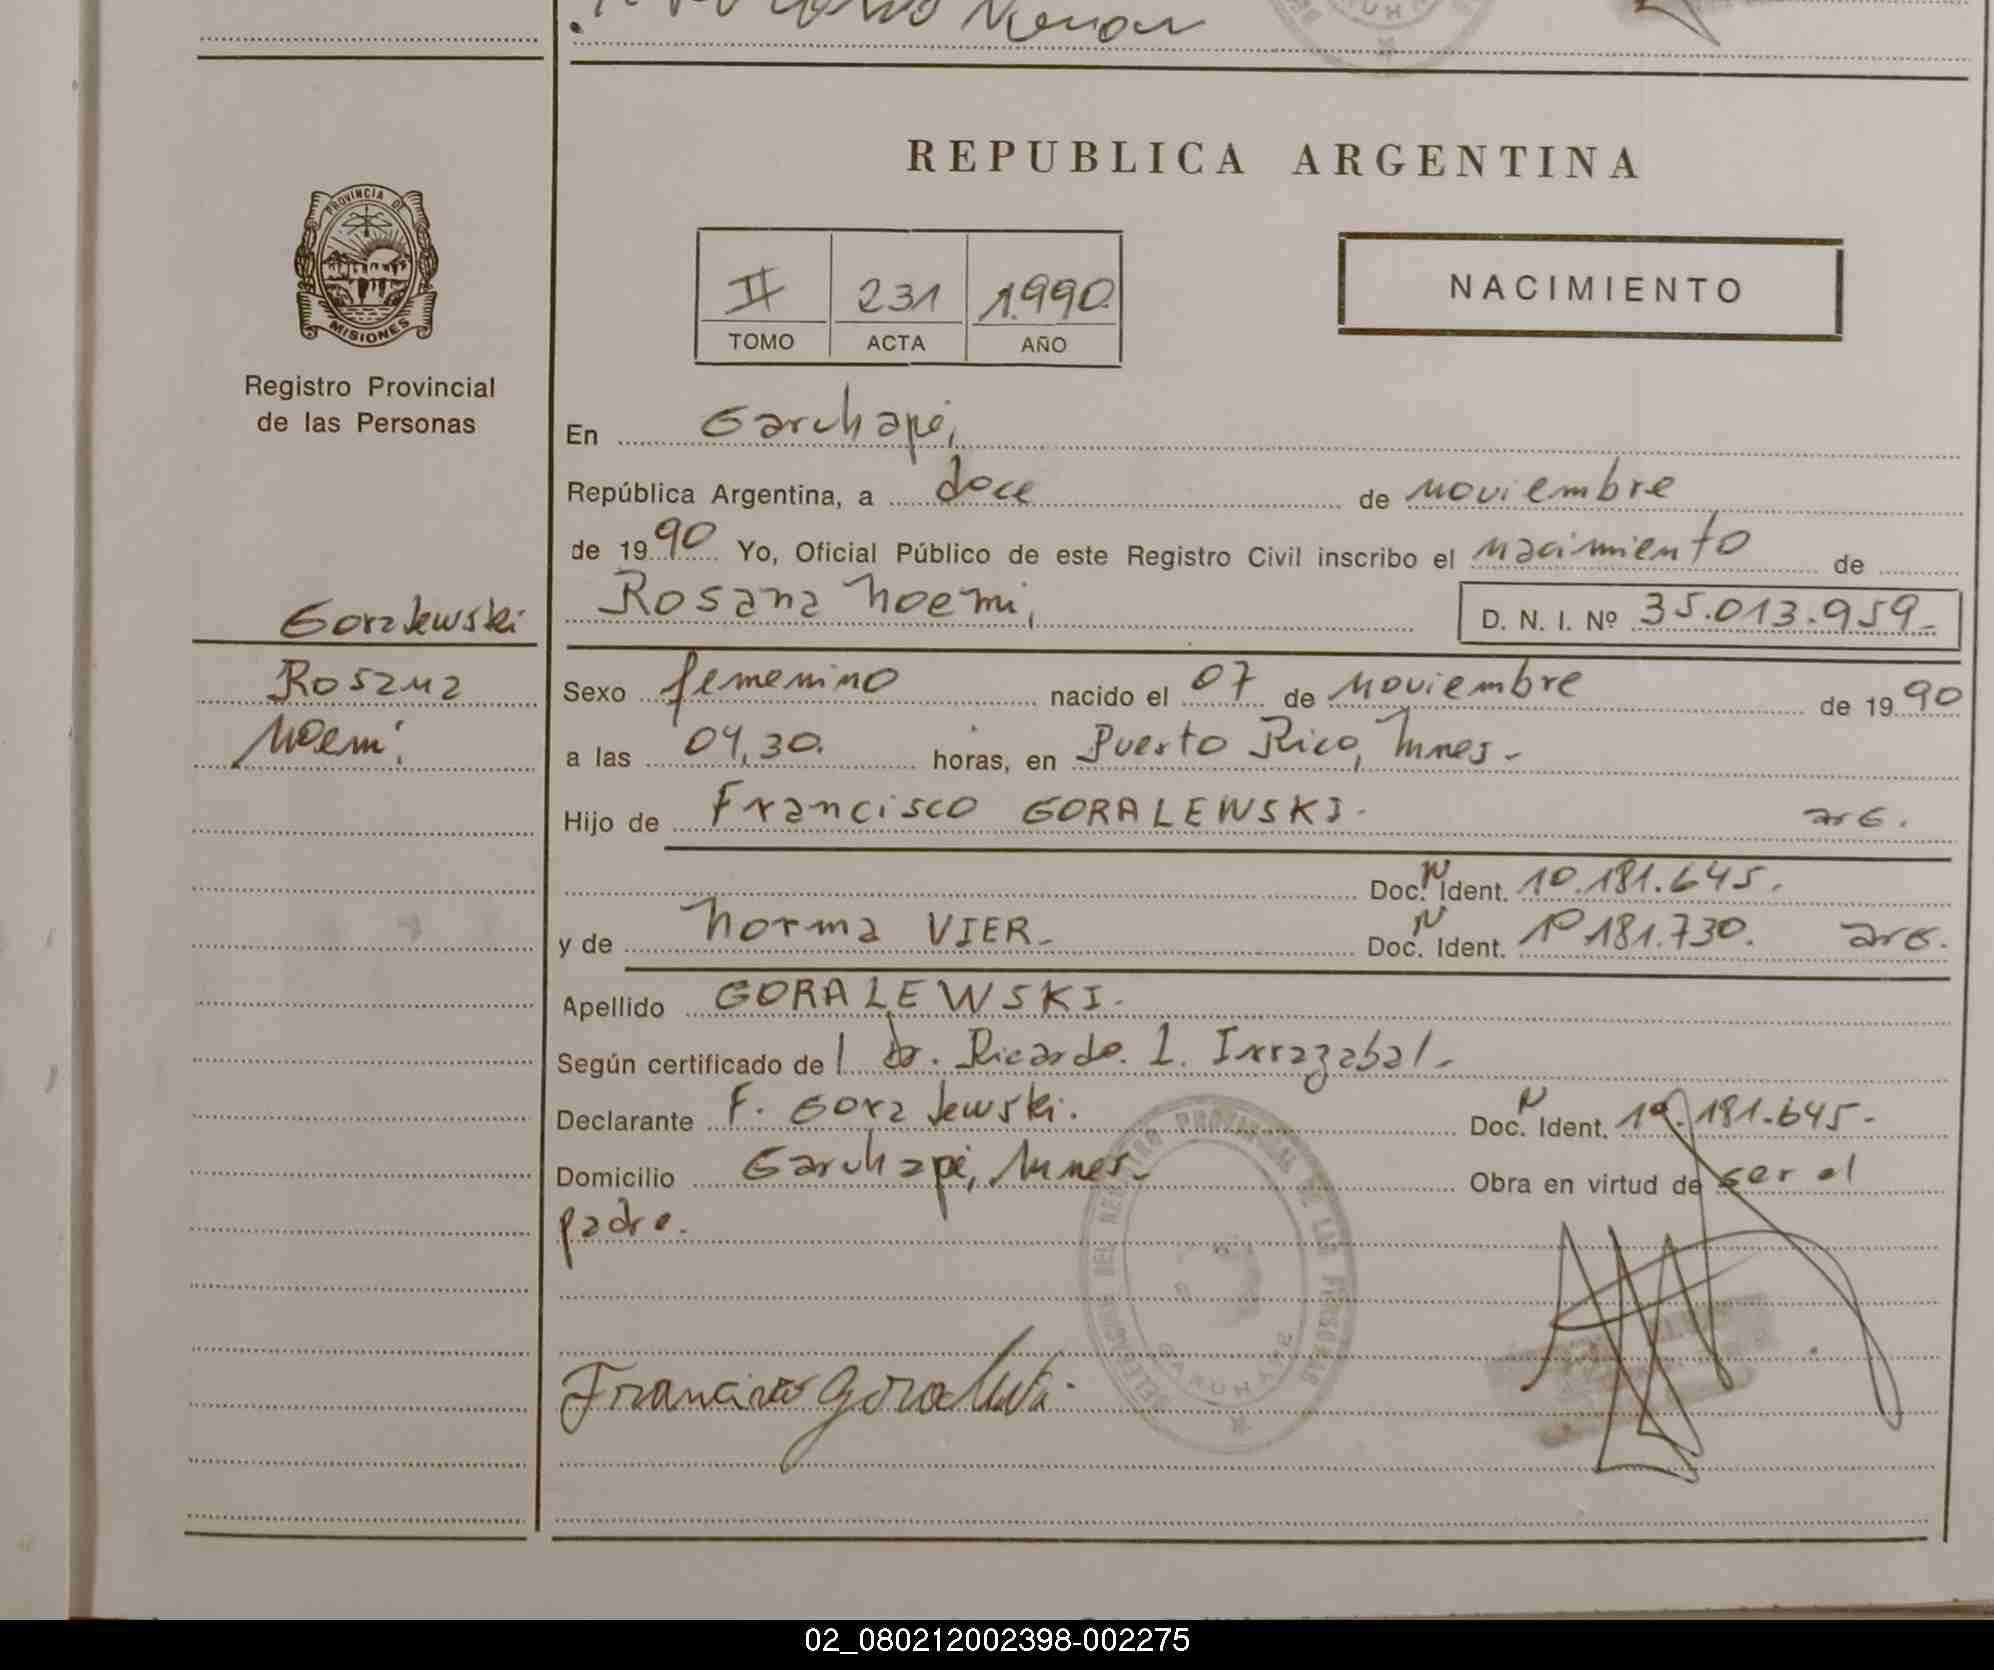 Menor
REPUBLICA ARGENTINA
PROVINCIA DE
MISIONES
Registro Provincial
de las Personas
II 231 1.990
TOMO ACTA AÑO
NACIMIENTO
En Garuhapé,
República Argentina, a doce de noviembre
de 1990 Yo, Oficial Público de este Registro Civil inscribo el nacimiento de
Rosana Noemi, D. N. I. Nº 35.013.959-
Goralewski
Rosana
Noemi
Sexo femenino nacido el 07 de noviembre de 1990
a las 04,30. horas, en Puerto Rico, Mnes-
Hijo de Francisco GORALEWSKI- arg.
Doc. N Ident. 10.181.645.
y de Norma VIER- Doc. N Ident. 10 181.730. arg.
Apellido GORALEWSKI-
Según certificado de l dr. Ricardo. I. Irrazabal-
Declarante F. Goralewski. Doc. N Ident. 10.181.645-
Domicilio Garuhapé, Mnes- Obra en virtud de ser el
padre.
DEL REGISTRO PROVINCIAL DE LAS PERSONAS
GARUHAPE
Francisco Goralewski
02_080212002398-002275